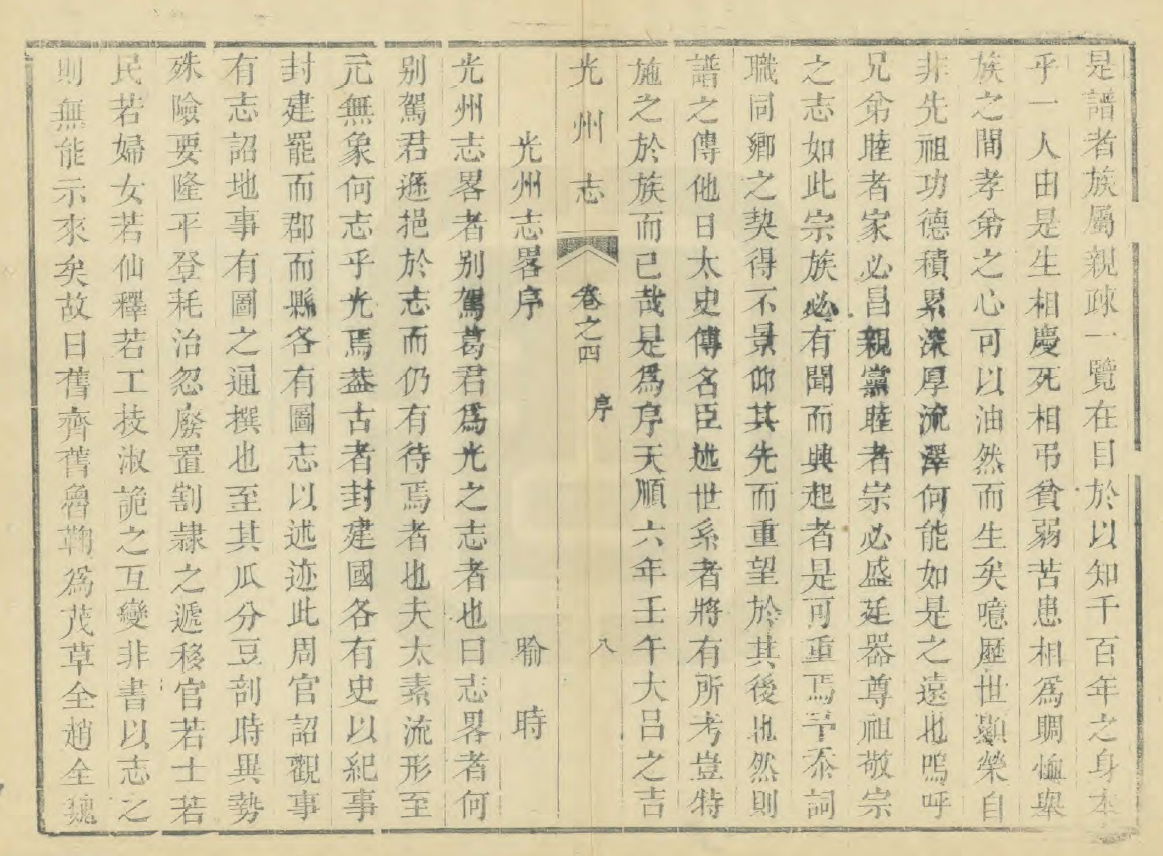 是譜者族屬親疎一覽在目於以知千百年之身本
乎一人由是生相慶死相弔貧弱苦患相爲賙恤舉
族之間孝弟之心可以油然而生矣噫歷世顯榮自
非先祖功德積累深厚流澤何能如是之遠也嗚呼
兄弟睦者家必昌親黨睦者宗必盛廷器尊祖敬宗
之志如此宗族必有聞而興起者是可重焉予忝詞
職同鄉之契得不景仰其先而重望於其後也然則
譜之傳他日太史傳名臣述世系者將有所考豈特
施之於族而已哉是爲序天順六年壬午大呂之吉
光州志 卷之四 序 八
光州志畧序 喻時
光州志畧者别駕葛君爲光之志者也曰志畧者何
别駕君遜挹於志而仍有待焉者也夫太素流形至
元無象何志乎光焉葢古者封建國各有史以紀事
封建罷而郡而縣各有圖志以述迹此周官詔觀事
有志詔地事有圖之通撰也至其瓜分豆剖時異勢
殊險要隆平登耗治忽廢置割隷之遞移官若士若
民若婦女若仙釋若工技淑詭之互變非書以志之
則無能示來矣故曰舊齊舊魯鞠爲茂草全趙全魏